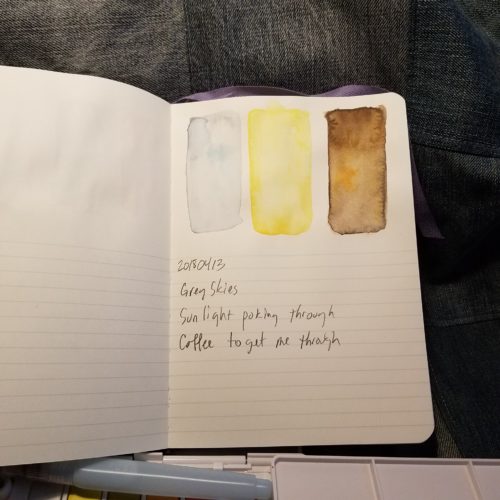 20180413
Grey Skies
Sunlight poking through
Coffee to get me through